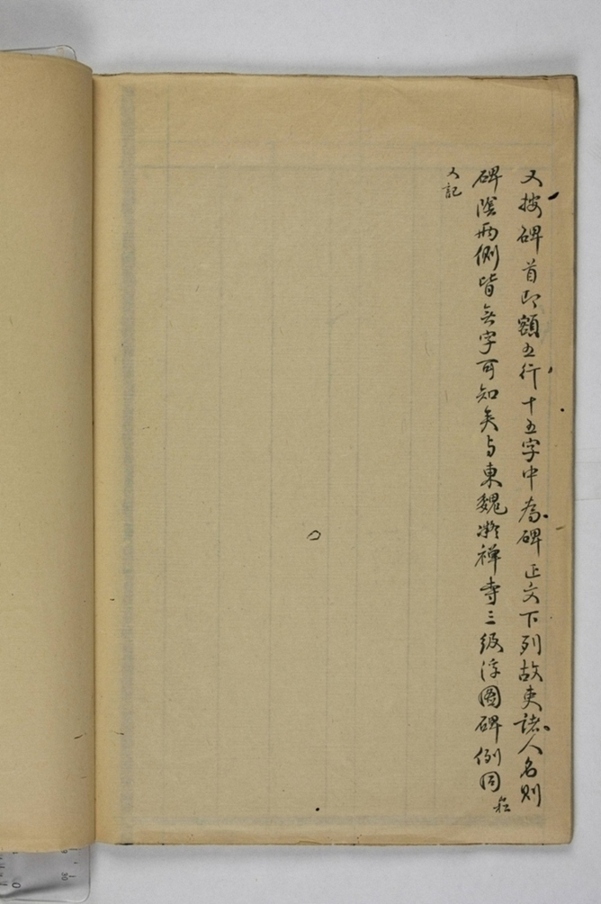 又按碑首即額五行十五字中為碑正文下列故吏諸人名則
碑陰兩側皆無字可知矣与東魏凝禅寺三級浮圖碑例同
人記